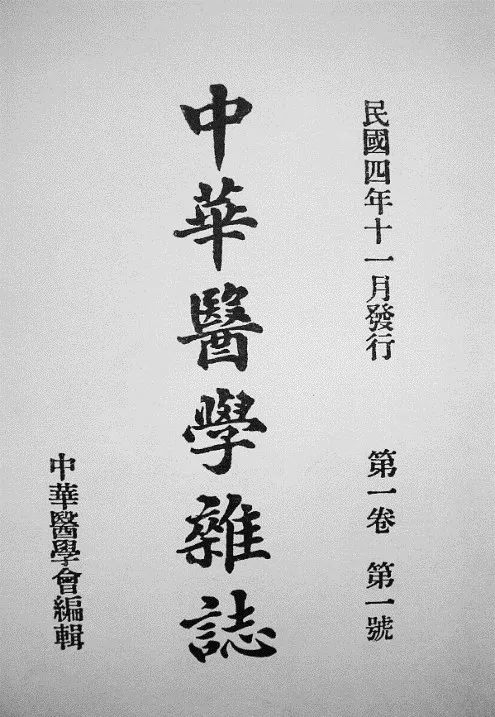 民國四年十一月發行
第一卷 第一號
中華醫學雜誌
中華醫學會編輯